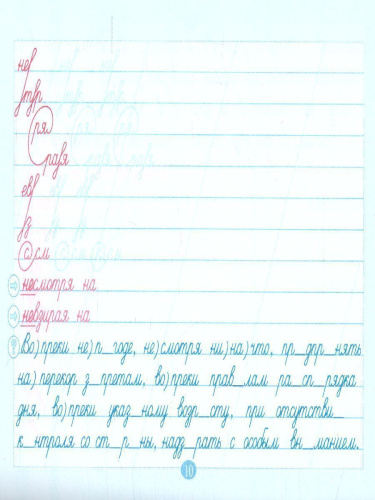 не/
тур
ря
равя
ев/
/д
с см
⇨ несмотря на
⇨ невзирая на
Во)преки не)п_годе, не)смотря ни)на)что, пр_дпр_нять
на)перекор з_претам, во)преки прав_лам ра_сп_рядка
дня, во)преки указ_ному возр_сту, при отсутстви_
к_нтроля со ст_р_ны, надз_рать с особым вн_манием.
10